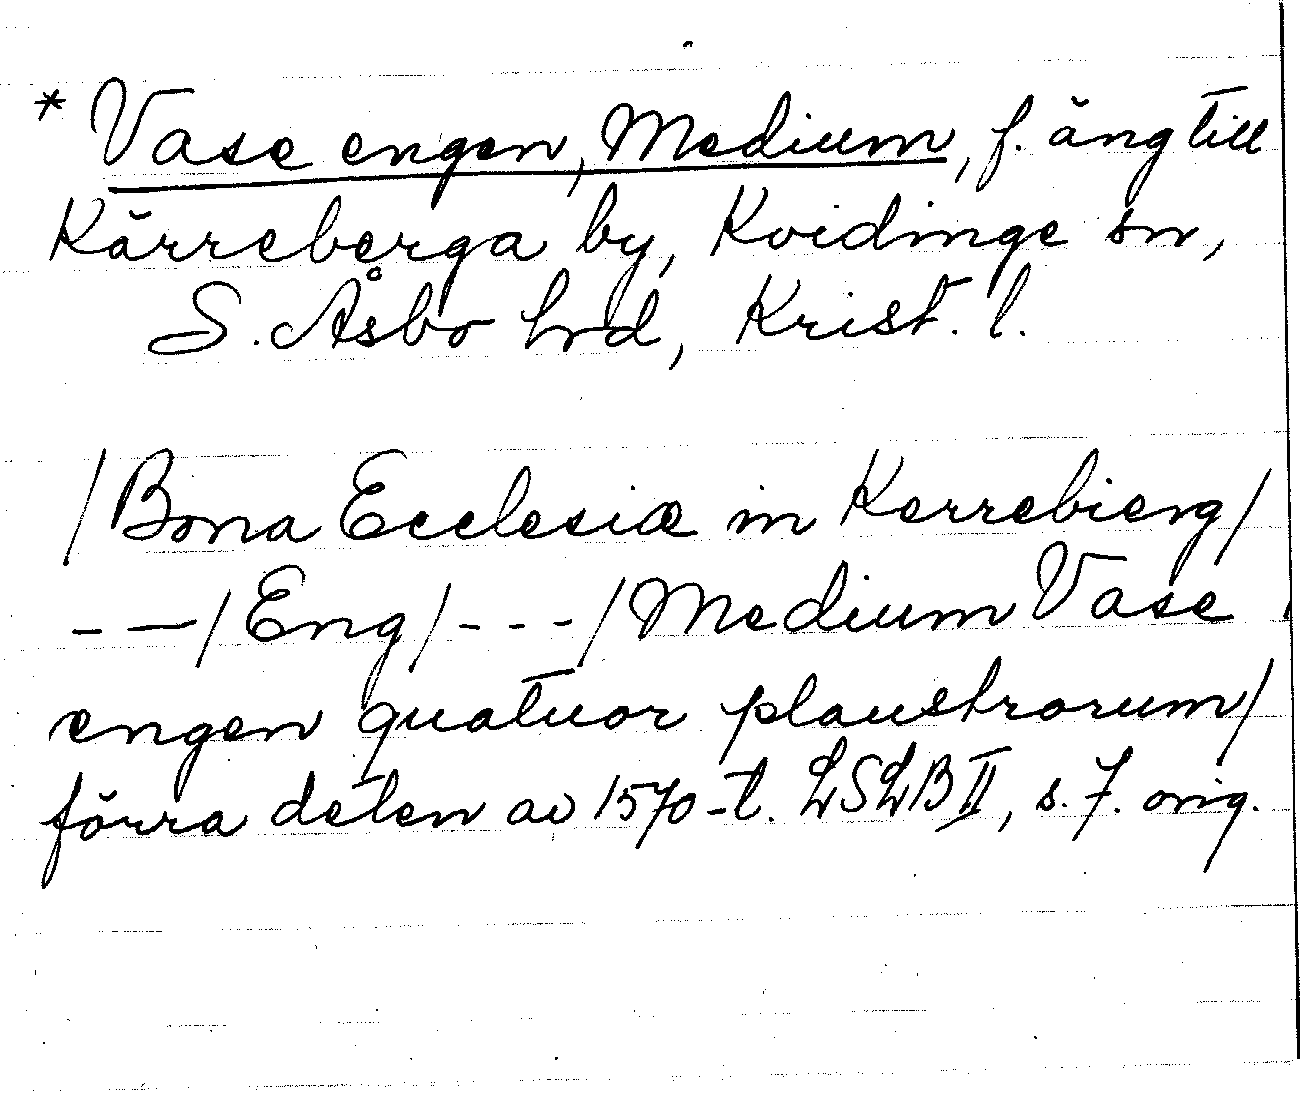 * Vase engen, Medium, f. äng till
Kärreberga by, Kvidinge sn,
S. Åsbo hrd, Krist. l.
/Bona Ecclesiæ in Kerrebierg/
- — /Eng/ - - - /Medium Vase
engen quatuor plaustrorum/
förra delen av 1570-t. LSLB II, s. 7. orig.